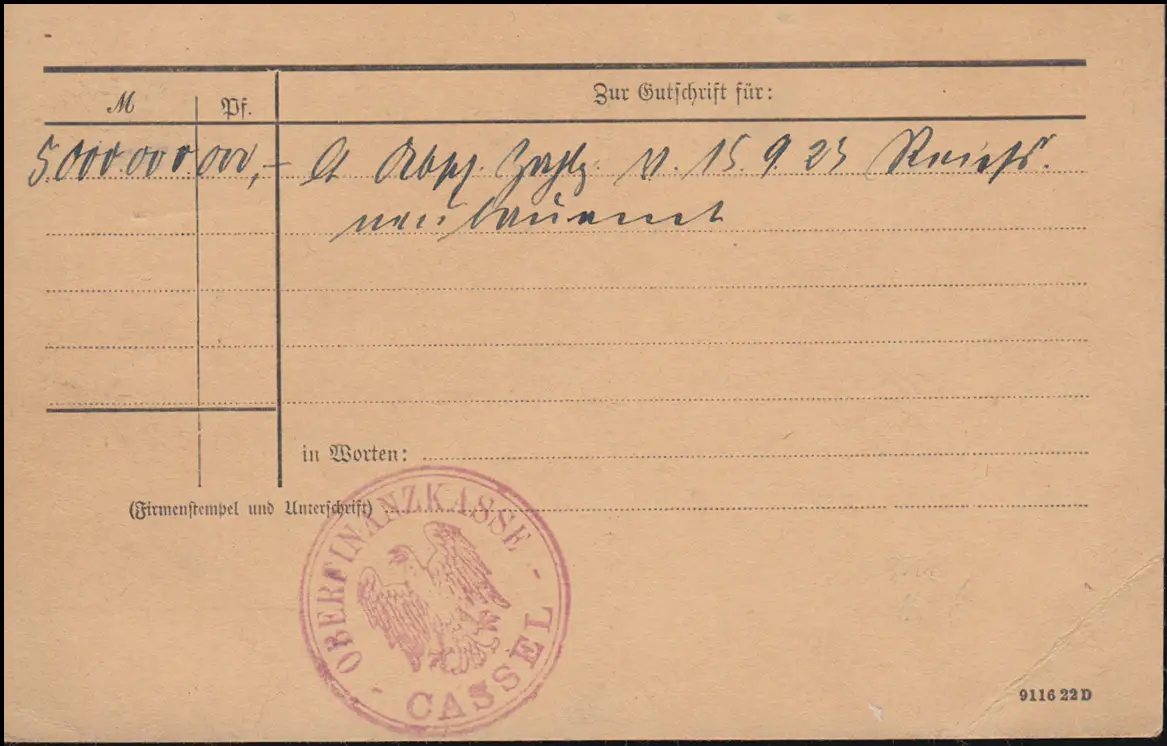 M Pf. Zur Gutschrift für:
5.000.000.000,- lt v. 15.9.23 Reichs-
neubauamt
in Worten:
(Firmenstempel und Unterschrift)
OBERFINANZKASSE
- CASSEL -
9116 22 D